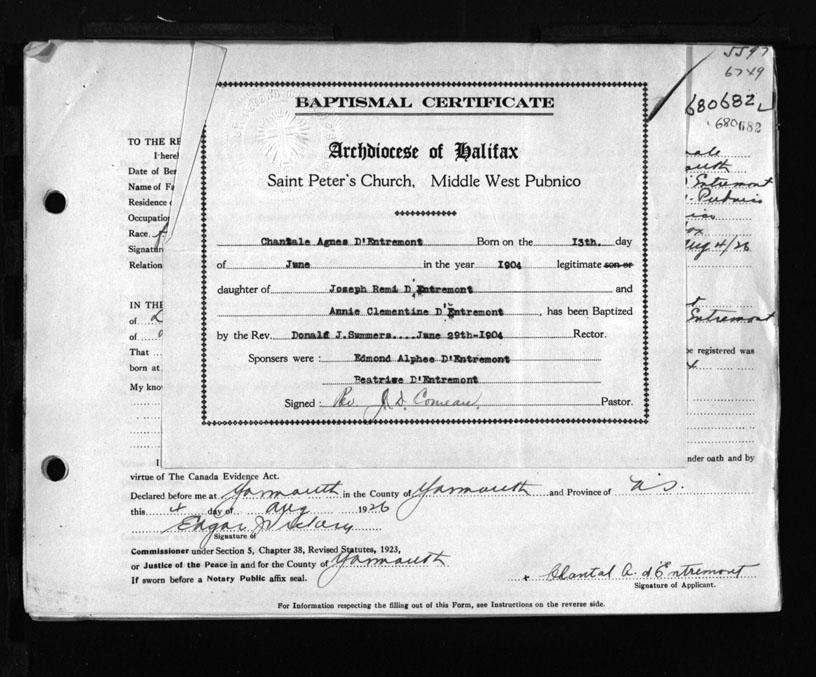 5597
6749
680682
680682
BAPTISMAL CERTIFICATE
Archdiocese of Halifax
Saint Peter's Church, Middle West Pubnico
Chantale Agnes D'Entremont Born on the 13th. day
of June in the year 1904 legitimate son or
daughter of Joseph Remi D'Entremont and
Annie Clementine D'Entremont, has been Baptized
by the Rev. Donald J.Summers....June 29th-1904 Rector.
Sponsers were : Edmond Alphee D'Entremont
Beatrise D'Entremont
Signed : Rev. J. D. Comeau. Pastor.
TO THE RE
I herel
Date of Ber
Name of Fa
Residence
Occupatio
Race
Signatur
Relation
Entremont
Aug 4/26
IN THE
of
of
Entremont
That
be registered was
born at
My kno
I under oath and by
virtue of The Canada Evidence Act.
Declared before me at Yarmouth in the County of Yarmouth and Province of N.S.
this 4 day of Aug 1926
Edgar
Signature of
Commissioner under Section 5, Chapter 38, Revised Statutes, 1923,
or Justice of the Peace in and for the County of Yarmouth
If sworn before a Notary Public affix seal.
x Chantal A. d'Entremont
Signature of Applicant.
For Information respecting the filling out of this Form, see Instructions on the reverse side.